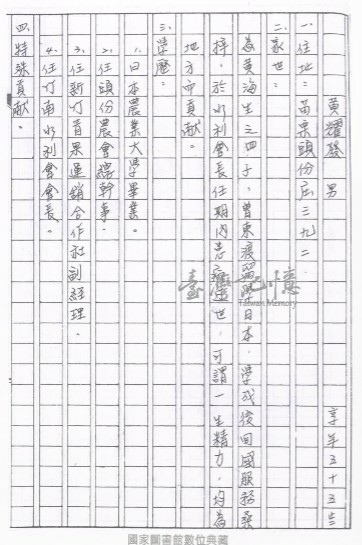 黃耀發 男 享年五十五歲
一、住址：苗栗頭份庄三九二．
二、家世：
為黃海生之四子，曾東渡留學日本．學成後回國服務桑
梓，於水利會長任期內逝世．可謂一生精力，均為
地方而貢獻。
三、學歷：
1.日本農業大學畢業。
2.任頭份農會總幹事．
3.任新竹青果運銷合作社副經理．
4.任竹南水利會會長。
四、特殊貢獻。
臺灣記憶
Taiwan Memory
國家圖書館數位典藏